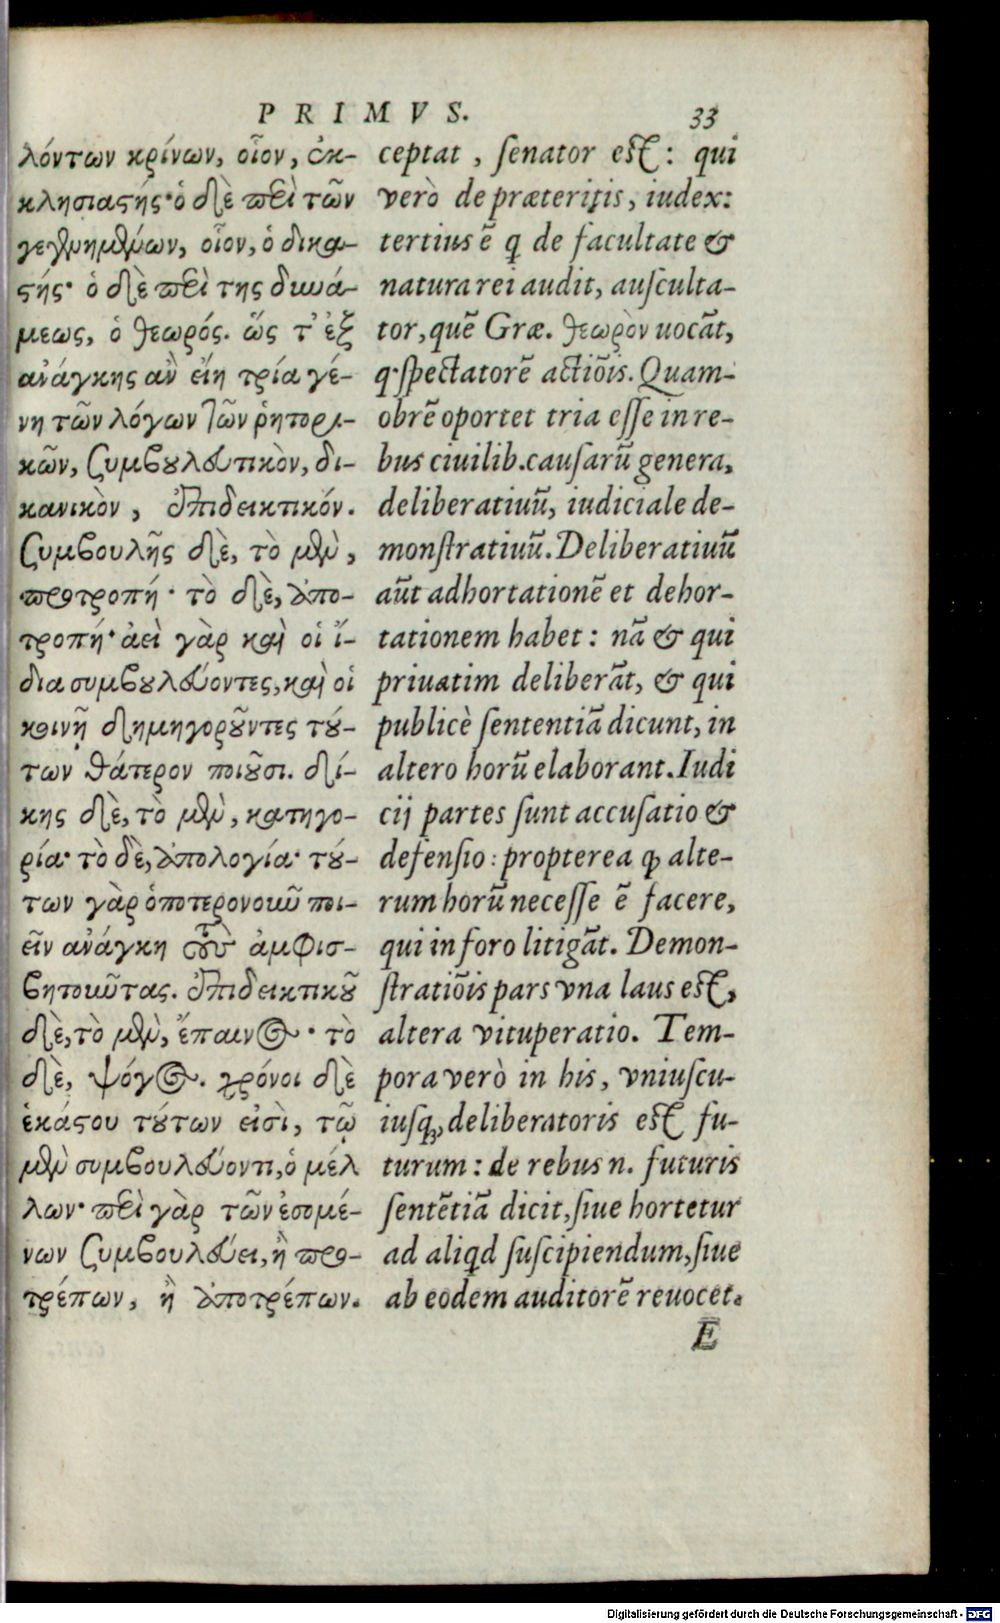 PRIMVS. 33
λόντων κρίνων, οἷον, ἐκ-
κλησιαστής· ὁ δὲ περὶ τῶν
γεγενημένων, οἷον, ὁ δικα-
στής· ὁ δὲ περὶ της δυνά-
μεως, ὁ θεωρός. ὥς τ' ἐξ
ἀνάγκης ἂν εἴη τρία γέ-
νη τῶν λόγων τῶν ῥητορι-
κῶν, συμβουλευτικὸν, δι-
κανικὸν, ἐπιδεικτικόν.
συμβουλῆς δὲ, τὸ μὲν,
προτροπή· τὸ δὲ, ἀπο-
τροπή· ἀεὶ γὰρ καὶ οἱ ἴ-
δια συμβουλεύοντες, καὶ οἱ
κοινῇ δημηγοροῦντες τού-
των θάτερον ποιοῦσι. δί-
κης δὲ, τὸ μὲν, κατηγο-
ρία· τὸ δὲ, ἀπολογία· τού-
των γὰρ ὁποτερονοιοῦν ποι-
εῖν ἀνάγκη τοὺς ἀμφισ-
βητοῦντας. ἐπιδεικτικοῦ
δὲ, τὸ μὲν, ἔπαινος· τὸ
δὲ, ψόγος. χρόνοι δὲ
ἑκάστου τούτων εἰσὶ, τῷ
μὲν συμβουλεύοντι, ὁ μέλ
λων· περὶ γὰρ τῶν ἐσομέ-
νων συμβουλεύει, ἢ προ-
τρέπων, ἢ ἀποτρέπων.
ceptat, ſenator eſt: qui
verò de præteritis, iudex:
tertius ē q̃ de facultate &
natura rei audit, auſculta-
tor, quē Græ. θεωρὸν uocāt,
q. ſpectatorē actiōis. Quam-
obrē oportet tria eſſe in re-
bus ciuilib. cauſarū genera,
deliberatiuū, iudiciale de-
monſtratiuū. Deliberatiuū
aūt adhortationē et dehor-
tationem habet: nā & qui
priuatim deliberāt, & qui
publicè ſententiā dicunt, in
altero horū elaborant. Iudi
cij partes ſunt accuſatio &
defenſio: propterea ꝙ alte-
rum horū neceſſe ē facere,
qui in foro litigāt. Demon-
ſtratiōis pars vna laus eſt,
altera vituperatio. Tem-
pora verò in his, vniuſcu-
iuſq;, deliberatoris eſt fu-
turum: de rebus n. futuris
ſentētiā dicit, ſiue hortetur
ad aliqd ſuſcipiendum, ſiue
ab eodem auditorē reuocet.
E
Digitalisierung gefördert durch die Deutsche Forschungsgemeinschaft - DFG